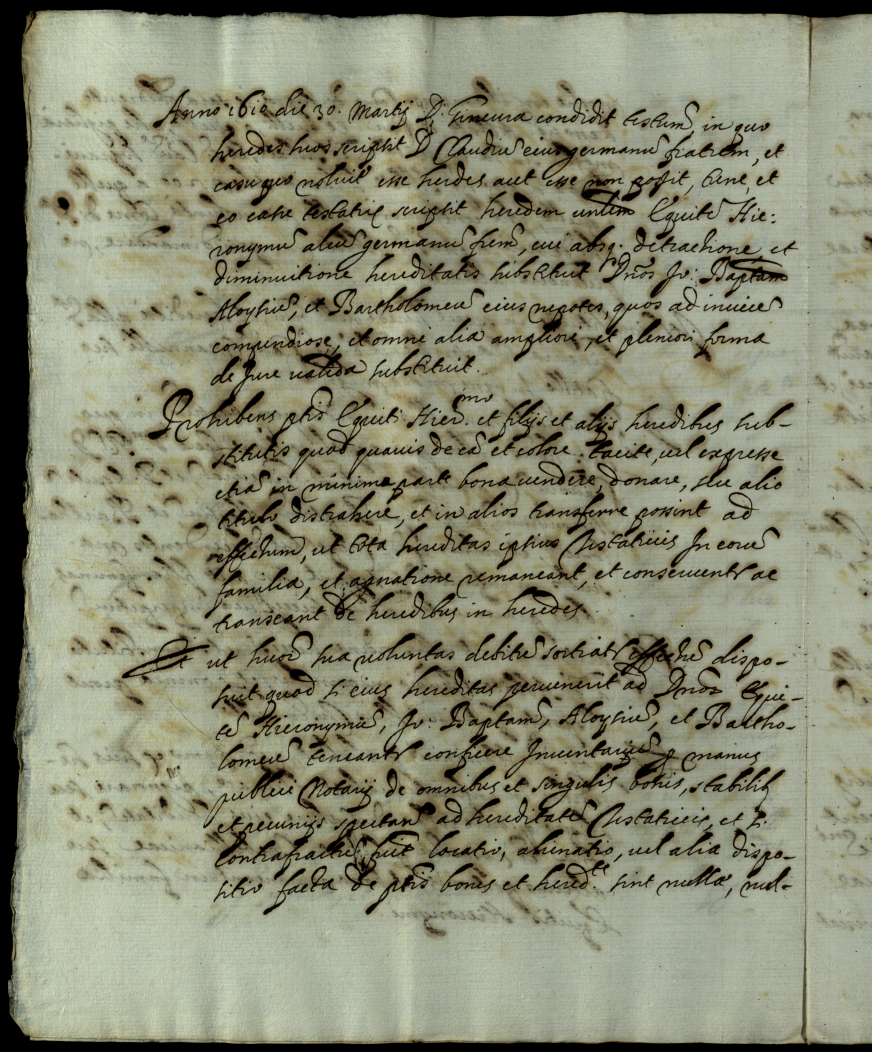 Anno 1610 die 30. Martij D. Gineura condidit testum̃ in quo
heredes suos scripsit D Claudiũ eius germanũ fratrem, et
casu quo noluit esse heredes aut esse non possit, tunc, et
eo casu testatrix scripsit heredem Equitẽ Hie:
ronymũ aliũ germanũ frem̃, cui absq. detractione et
diminuitione hereditatis substituit Dnõs Jo: Baptam
Aloysiũ, et Bartholomeũ eius nepotes, quos ad inuicẽ
compendiose, et omni alia ampliori, et pleniori forma
de Jure valida substituit.
Prohibens ptis̃ Equiti Hier.mo et filijs et alijs heredibus sub-
stitutis quod quauis de cã et colore. tacite, uel expresse
etiã in minima parte bona uendere, donare, seu alio
titulo distrahere, et in alios transferre possint ad
effectum, ut tota hereditas ipsius Testatricis In eorũ
familia, et agnatione remaneant, et conseruentr ac
transeant de heredibus in heredes.
Et ut huoĩ sua voluntas debitũ sortiatr effectũ dispo-
suit quod si eius hereditas peruenerit ad Dnõs Equi-
tẽ Hieronymũ, Jo: Baptam̃, Aloysiũ, et Bartho-
lomeũ teneantr conficere Inuentariũ p manus
publici Notarij de omnibus et singulis bonis, stabilib
et pecunijs spectan̄ ad hereditatẽ Testatricis, et si
Contrafactũ fuit locatio, alienatio, uel alia dispo-
sitio facta de ptis̃ bonis et hered.te sint nullæ, nul-